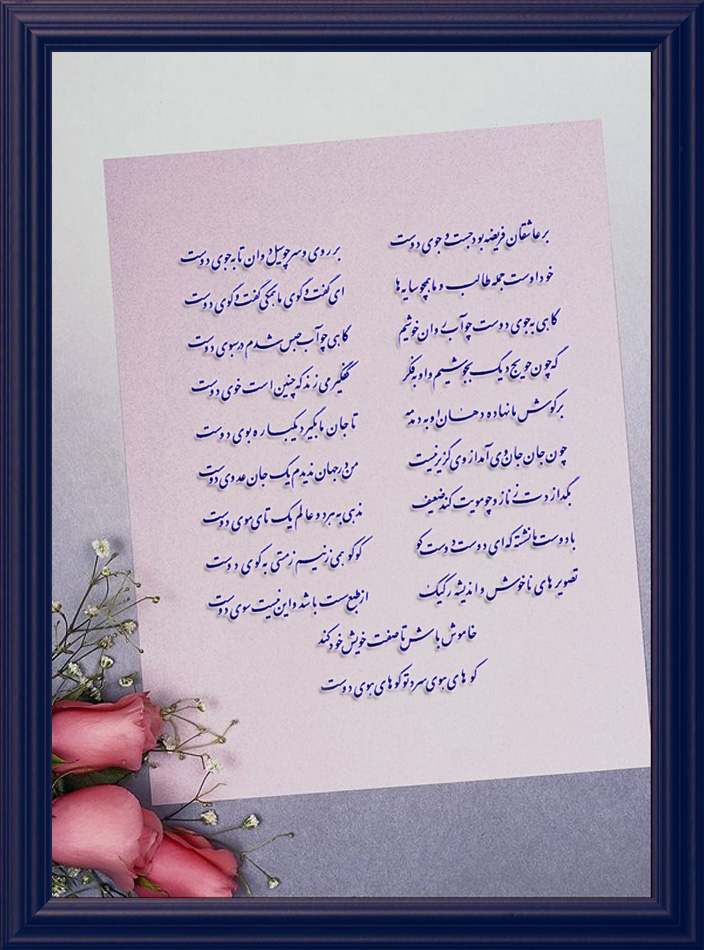 بر عاشقان فریضه بود جست و جوی دوست
بر روی و سر چو سیل دوان تا به جوی دوست
خود اوست جمله طالب و ما همچو سایه ها
ای گفت و گوی ما همگی گفت و گوی دوست
گاهی به جوی دوست چو آب روان خوشیم
گاهی چو آب حبس شدم در سبوی دوست
گه چون حویج دیگ بجوشیم و او به فکر
کفگیر می زند که چنین است خوی دوست
بر گوش ما نهاده دهان او به دمدمه
تا جان ما بگیرد یکباره بوی دوست
چون جان جان وی آمد از وی گزیر نیست
من در جهان ندیدم یک جان عدوی دوست
بگدازدت ز ناز و چو مویت کند ضعیف
ندهی به هر دو عالم یکتای موی دوست
با دوست ما نشسته که ای دوست دوست کو
کو کو همی زنیم ز مستی به کوی دوست
تصویرهای ناخوش و اندیشه رکیک
از طبع سست باشد و این نیست سوی دوست
خاموش باش تا صفت خویش خود کند
کو های هوی سرد تو کو های هوی دوست